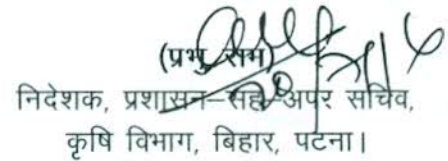 (प्रभु राम)
निदेशक, प्रशासन–सह–अपर सचिव,
कृषि विभाग, बिहार, पटना।